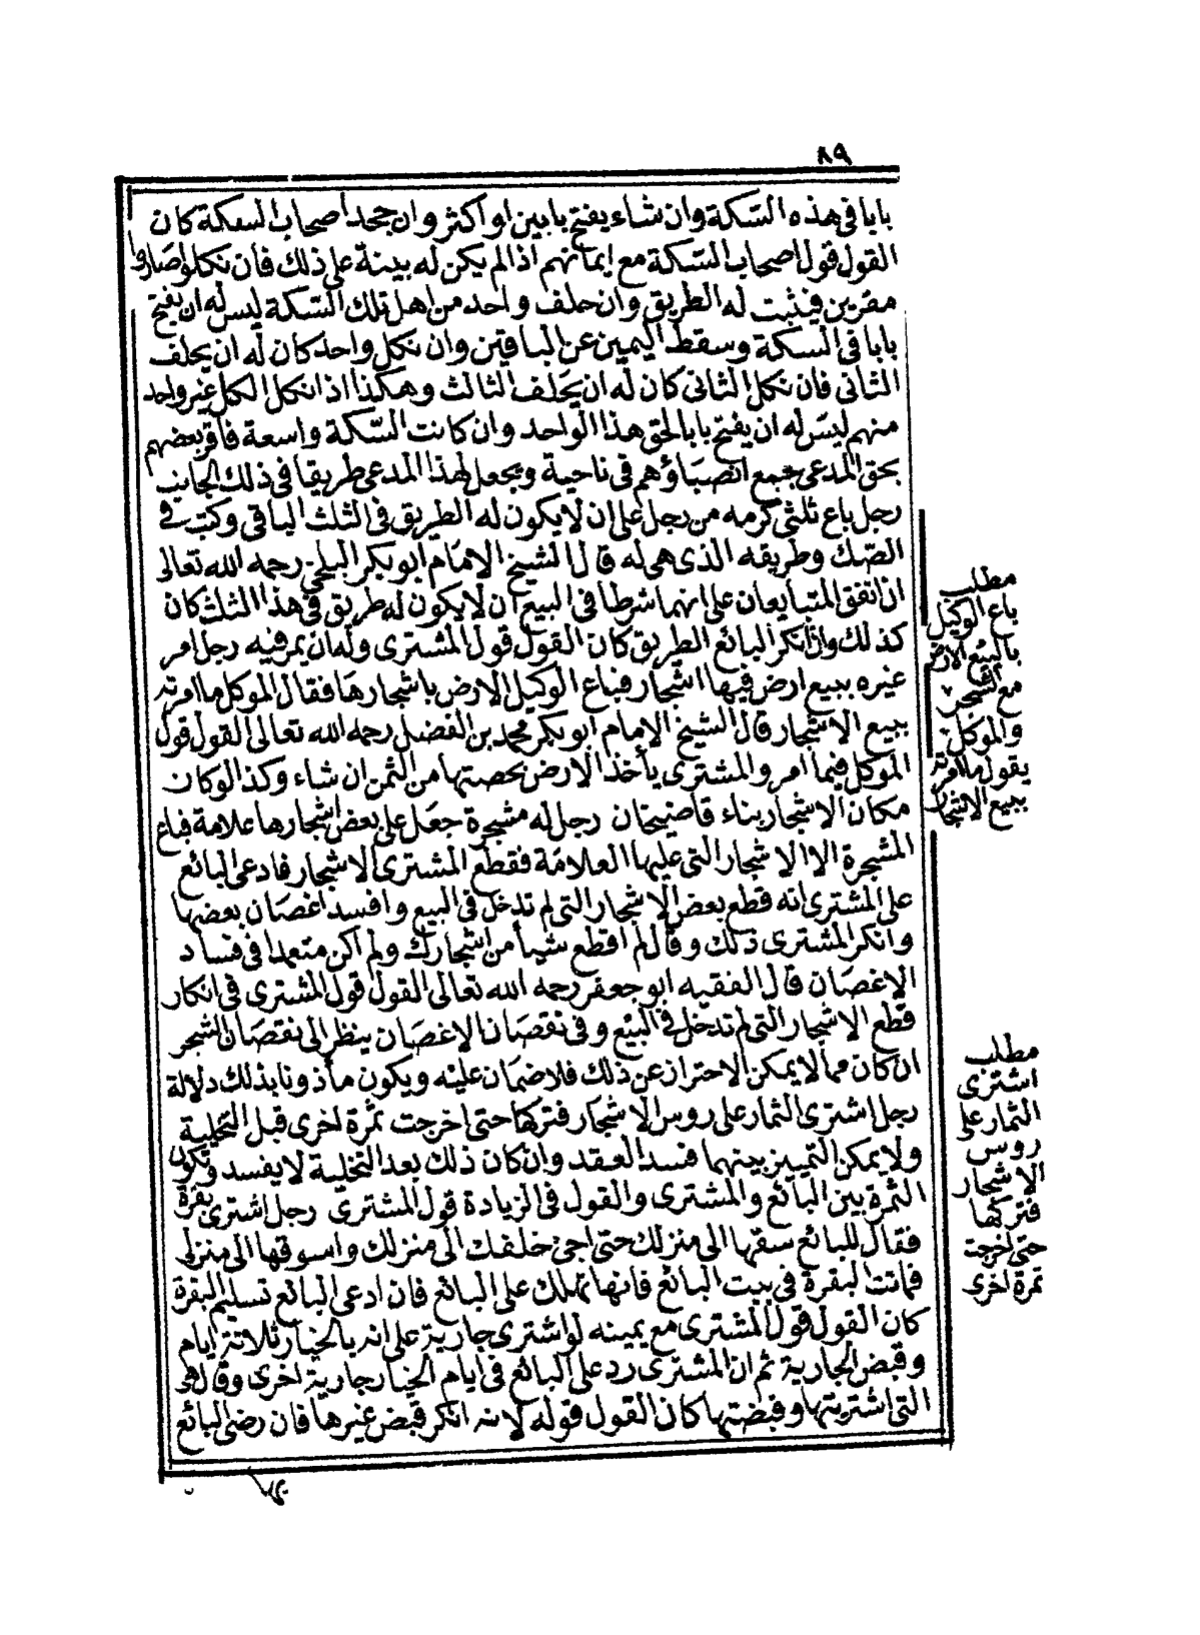 ٨٩
بابا فى هذه السّكة وان شاء يفتح بابين او اكثر وان جحد أصحاب السكة كان
القول قول اصحاب السّكة مع ايمانهم اذا لم يكن له بينة على ذلك فان نكلوا صاروا
مقرين فيثبت له الطريق وان حلف واحد من اهل تلك السّكة ليس له ان يفتح
بابا فى السكة وسقط اليمين عن الباقين وان نكل واحد كان له ان يحلف
الثانى فان نكل الثانى كان له ان يحلف الثالث وهكذا اذا نكل الكل غير واحد
منهم ليس له ان يفتح بابا لحق هذا الواحد وان كانت السّكة واسعة فاقر بعضهم
بحق المدعى جمع انصباؤهم فى ناحية ويجعل لهذا المدعى طريقا فى ذلك الجانب
رجل باع ثلثى كرمه من رجل على ان لا يكون له الطريق فى الثلث الباقى وكتب فى
الصّك وطريقه الذى هى له قال الشيخ الامام ابو بكر البلخى رحمه الله تعالى
ان اتفق المتبايعان على انهما شرطا فى البيع ان لا يكون له طريق فى هذا الثلث كان
كذلك وان انكر البائع الطريق كان القول قول المشترى وله ان يمر فيه رجل امر
غيره ببيع ارض فيها اشجار فباع الوكيل الارض باشجارها فقال الموكل ما امرته
ببيع الاشجار قال الشيخ الامام ابو بكر محمد بن الفضل رحمه الله تعالى القول قول
الموكل فيما امر والمشترى يأخذ الارض بحصتها من الثمن ان شاء وكذا لو كان
مكان الاشجار بناء قاضيخان رجل له مشجرة جعل على بعض اشجارها علامة فباع
المشجرة الا الاشجار التى عليها العلامة فقطع المشترى الاشجار فادعى البائع
على المشترى انه قطع بعض الاشجار التى لم تدخل فى البيع وافسد اغصان بعضها
وانكر المشترى ذلك وقال لم اقطع شيأ من اشجارك ولم اكن متعمدا فى فساد
الاغصان قال الفقيه ابو جعفر رحمه الله تعالى القول قول المشترى فى انكار
قطع الاشجار التى لم تدخل فى البيع وفى نقصان الاغصان ينظر الى نقصان الشجر
ان كان مما لا يمكن الاحتراز عن ذلك فلا ضمان عليه ويكون مأذونا بذلك دلالة
رجل اشترى الثمار على روس الاشجار فتركها حتى اخرجت ثمرة اخرى قبل التخلية
ولا يمكن التمييز بينهما فسد العقد وان كان ذلك بعد التخلية لا يفسد وتكون
الثمرة بين البائع والمشترى والقول فى الزيادة قول المشترى رجل اشترى بقرة
فقال للبائع سقها الى منزلك حتى اجئ خلفك الى منزلك واسوقها الى منزلى
فماتت البقرة فى بيت البائع فانها تهلك على البائع فان ادعى البائع تسليم البقرة
كان القول قول المشترى مع يمينه لو اشترى جارية على انه بالخيار ثلاثة ايام
وقبض الجارية ثم ان المشترى رد على البائع فى ايام الخيار جارية اخرى وقال هى
التى اشتريتها وقبضتها كان القول قوله لانه انكر قبض غيرها فان رضى البائع
مطلب
باع الوكيل
بالبيع الارض
مع الشجر
والموكل
يقول ما امرته
ببيع الاشجار
مطلب
اشترى
الثمار على
روس
الاشجار
فتركها
حتى اخرجت
ثمرة اخرى